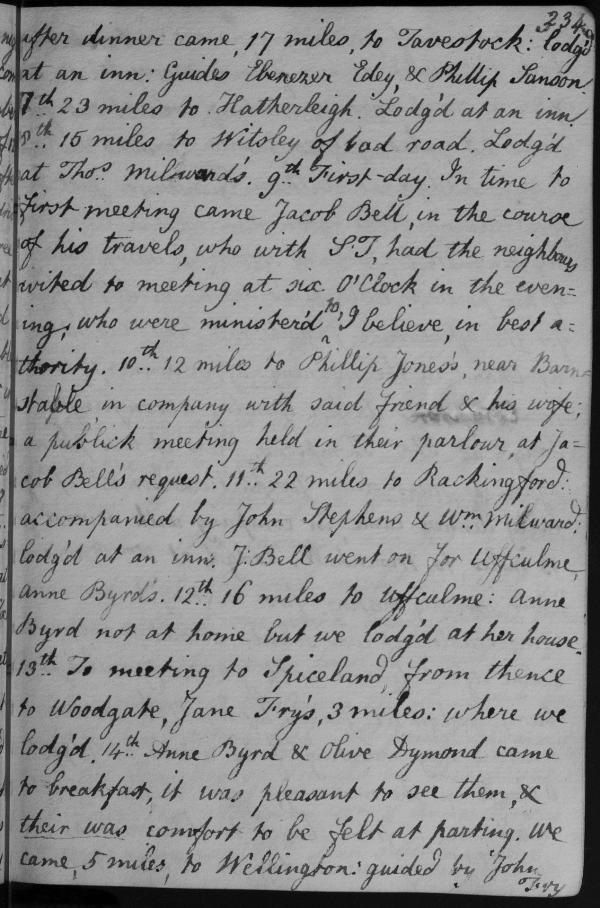 234
after dinner came, 17 miles, to Tavestock: lodg'd
at an inn: Guides Ebenezer Edey, & Phillip Sanson.
7th 23 miles to Hatherleigh. Lodg'd at an inn.
8th 15 miles to Witsley of bad road. Lodg'd
at Thos. Milward's. 9th First-day. In time to
first meeting came Jacob Bell, in the course
of his travels, who with S:T, had the neighbours
wited to meeting at six O'Clock in the even=
ing, who were minister'd to, I believe, in best a=
thority. 10th 12 miles to Phillip Jones's, near Barn=
stable in company with said friend & his wife;
a publick meeting held in their parlour, at Ja=
cob Bell's request. 11th 22 miles to Rackingford:
accompanied by John Stephens & Wm. Milward:
lodg'd at an inn. J: Bell went on for Uffculme,
Anne Byrd's. 12th 16 miles to Uffculme: Anne
Byrd not at home but we lodg'd at her house.
13th To meeting to Spiceland, from thence
to Woodgate, Jane Fry's, 3 miles: where we
lodg'd. 14th Anne Byrd & Olive Dymond came
to breakfast, it was pleasant to see them, &
their was comfort to be felt at parting. We
came, 5 miles, to Wellington: guided by John
Fry